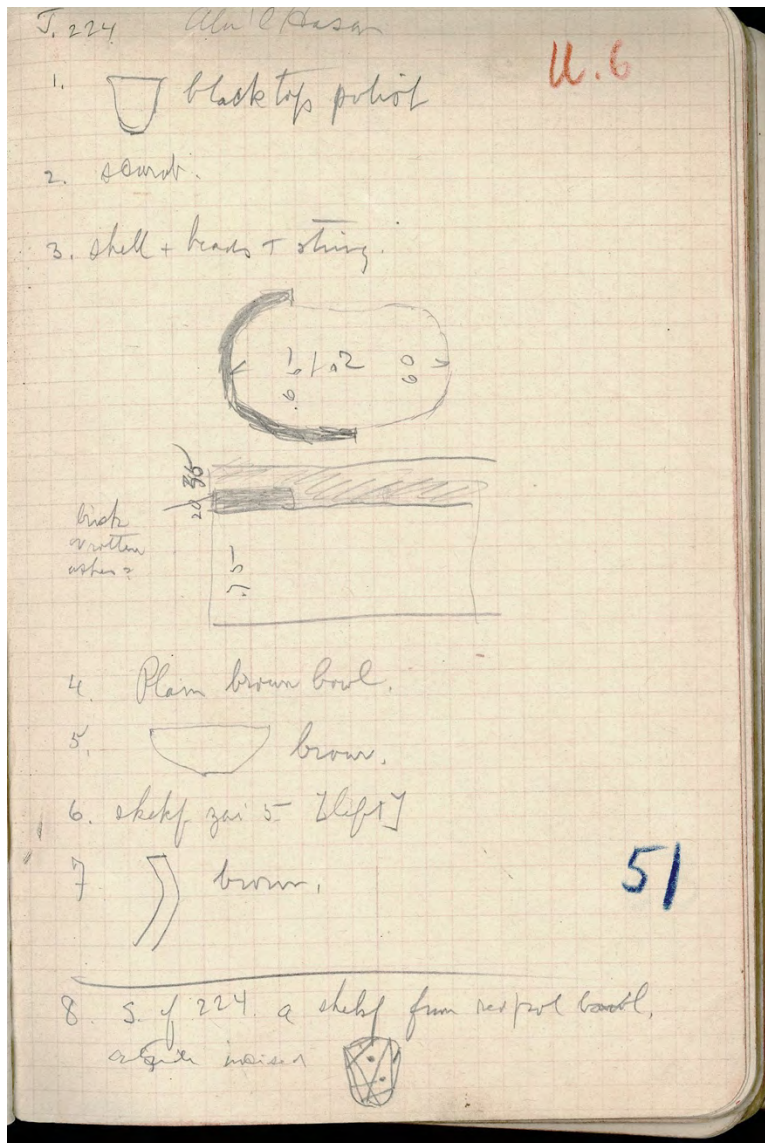 J. 224 Abu'l Hasan
U.6
1. black top polish
2. scarab.
3. shell + beads + string.
1.2
60
35
20
brick
rotten
ashes?
.75
4. Plain brown bowl.
5. brown.
6. shekf zai 5 [left]
7 brown.
51
8. S. of 224. a shekf from red pol bowl,
incised